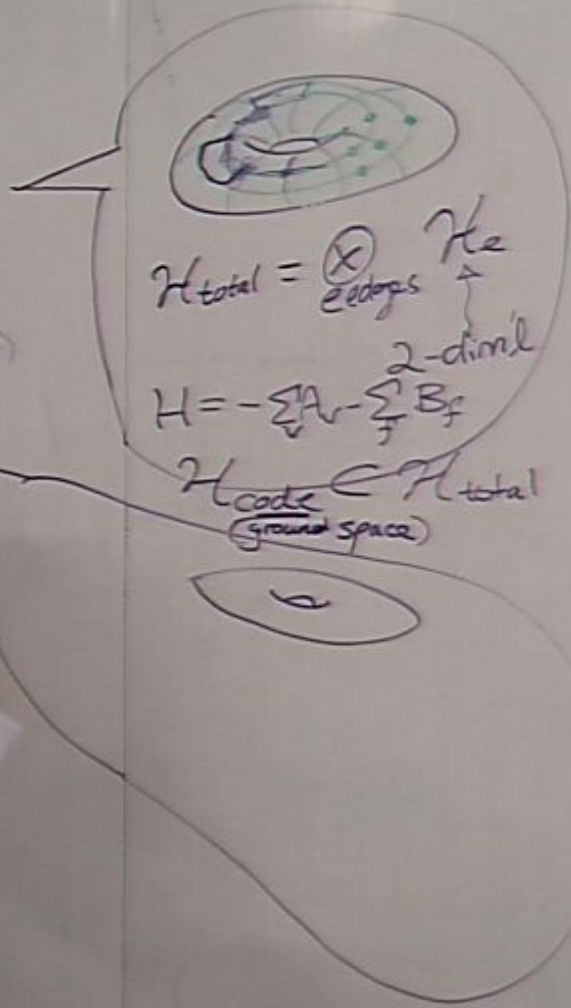 H total = ⊗ H e
e∈edges
2-dim'l
H = - Σ A v - Σ B f
v f
H code ⊂ H total
(ground space)